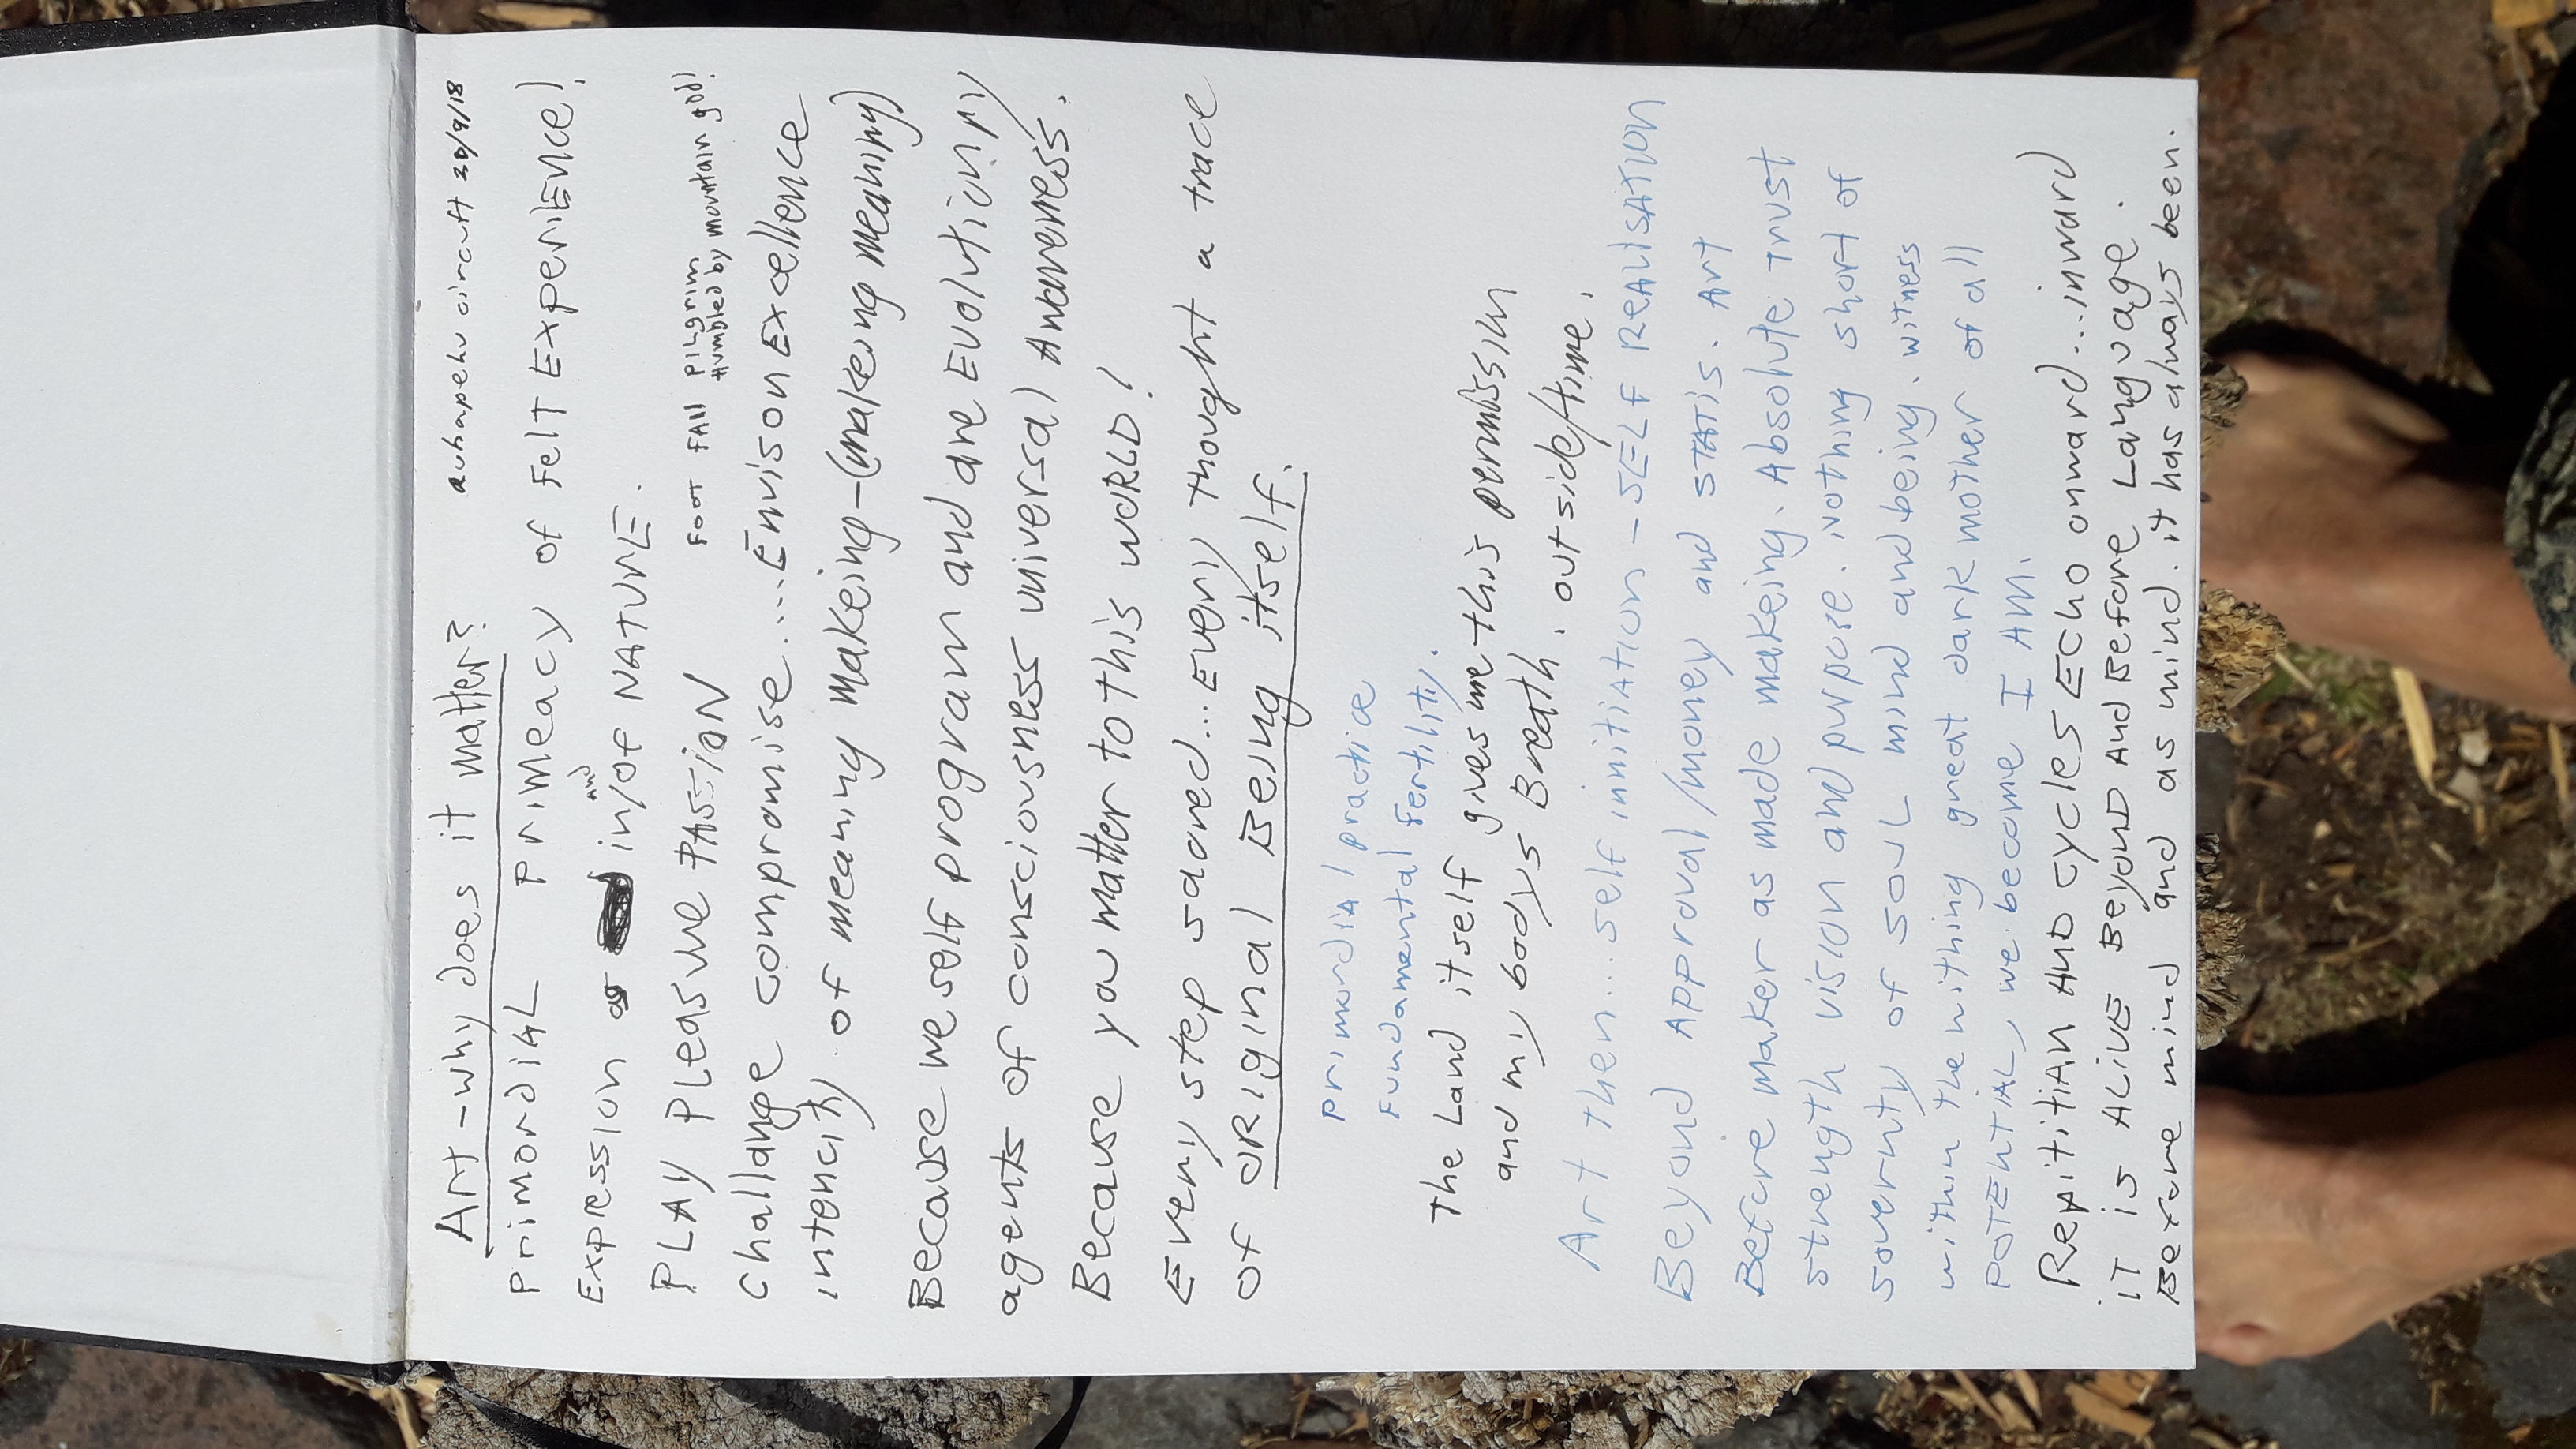 Art - why does it matter?
auhapehu circuit 20/9/18
PrimordiAL PriMeacy of Felt ExpeRiENce!
Expression in/of NATURE.
and
PLAY PLeasure PASSiON
FOOT FAll PILgrim
Humbled by mountain god!
Challange compromise.... Envison Excellence
intencity. of meaning Makeing-(makeing meaning)
Because we self program and are Evolutionry
agents of consciousness universal Awareness.
Because you matter to this WORLD!
Every step sacred... Every thought a trace
of ORiginal Being itself.
Primordial practice
Fundamental Fertility.
The Land itself gives me this permission
and my bodys Breath. outside/time.
Art then.... self innitiation - SELF REALISATION
Beyond Approval/money and STATIS. Art
Before maker as made makeing. Absolute Trust
strength vision and purpose. Nothing short of
sovernty of SOUL mind and being. witness
within the withing great dark mother of all
POTENTIAL, we become I AM.
RepititiAN AND cycles Echo onward...inward
iT is ALivE BeyonD AnD BeFore Language.
Before mind and as mind. it has always been.